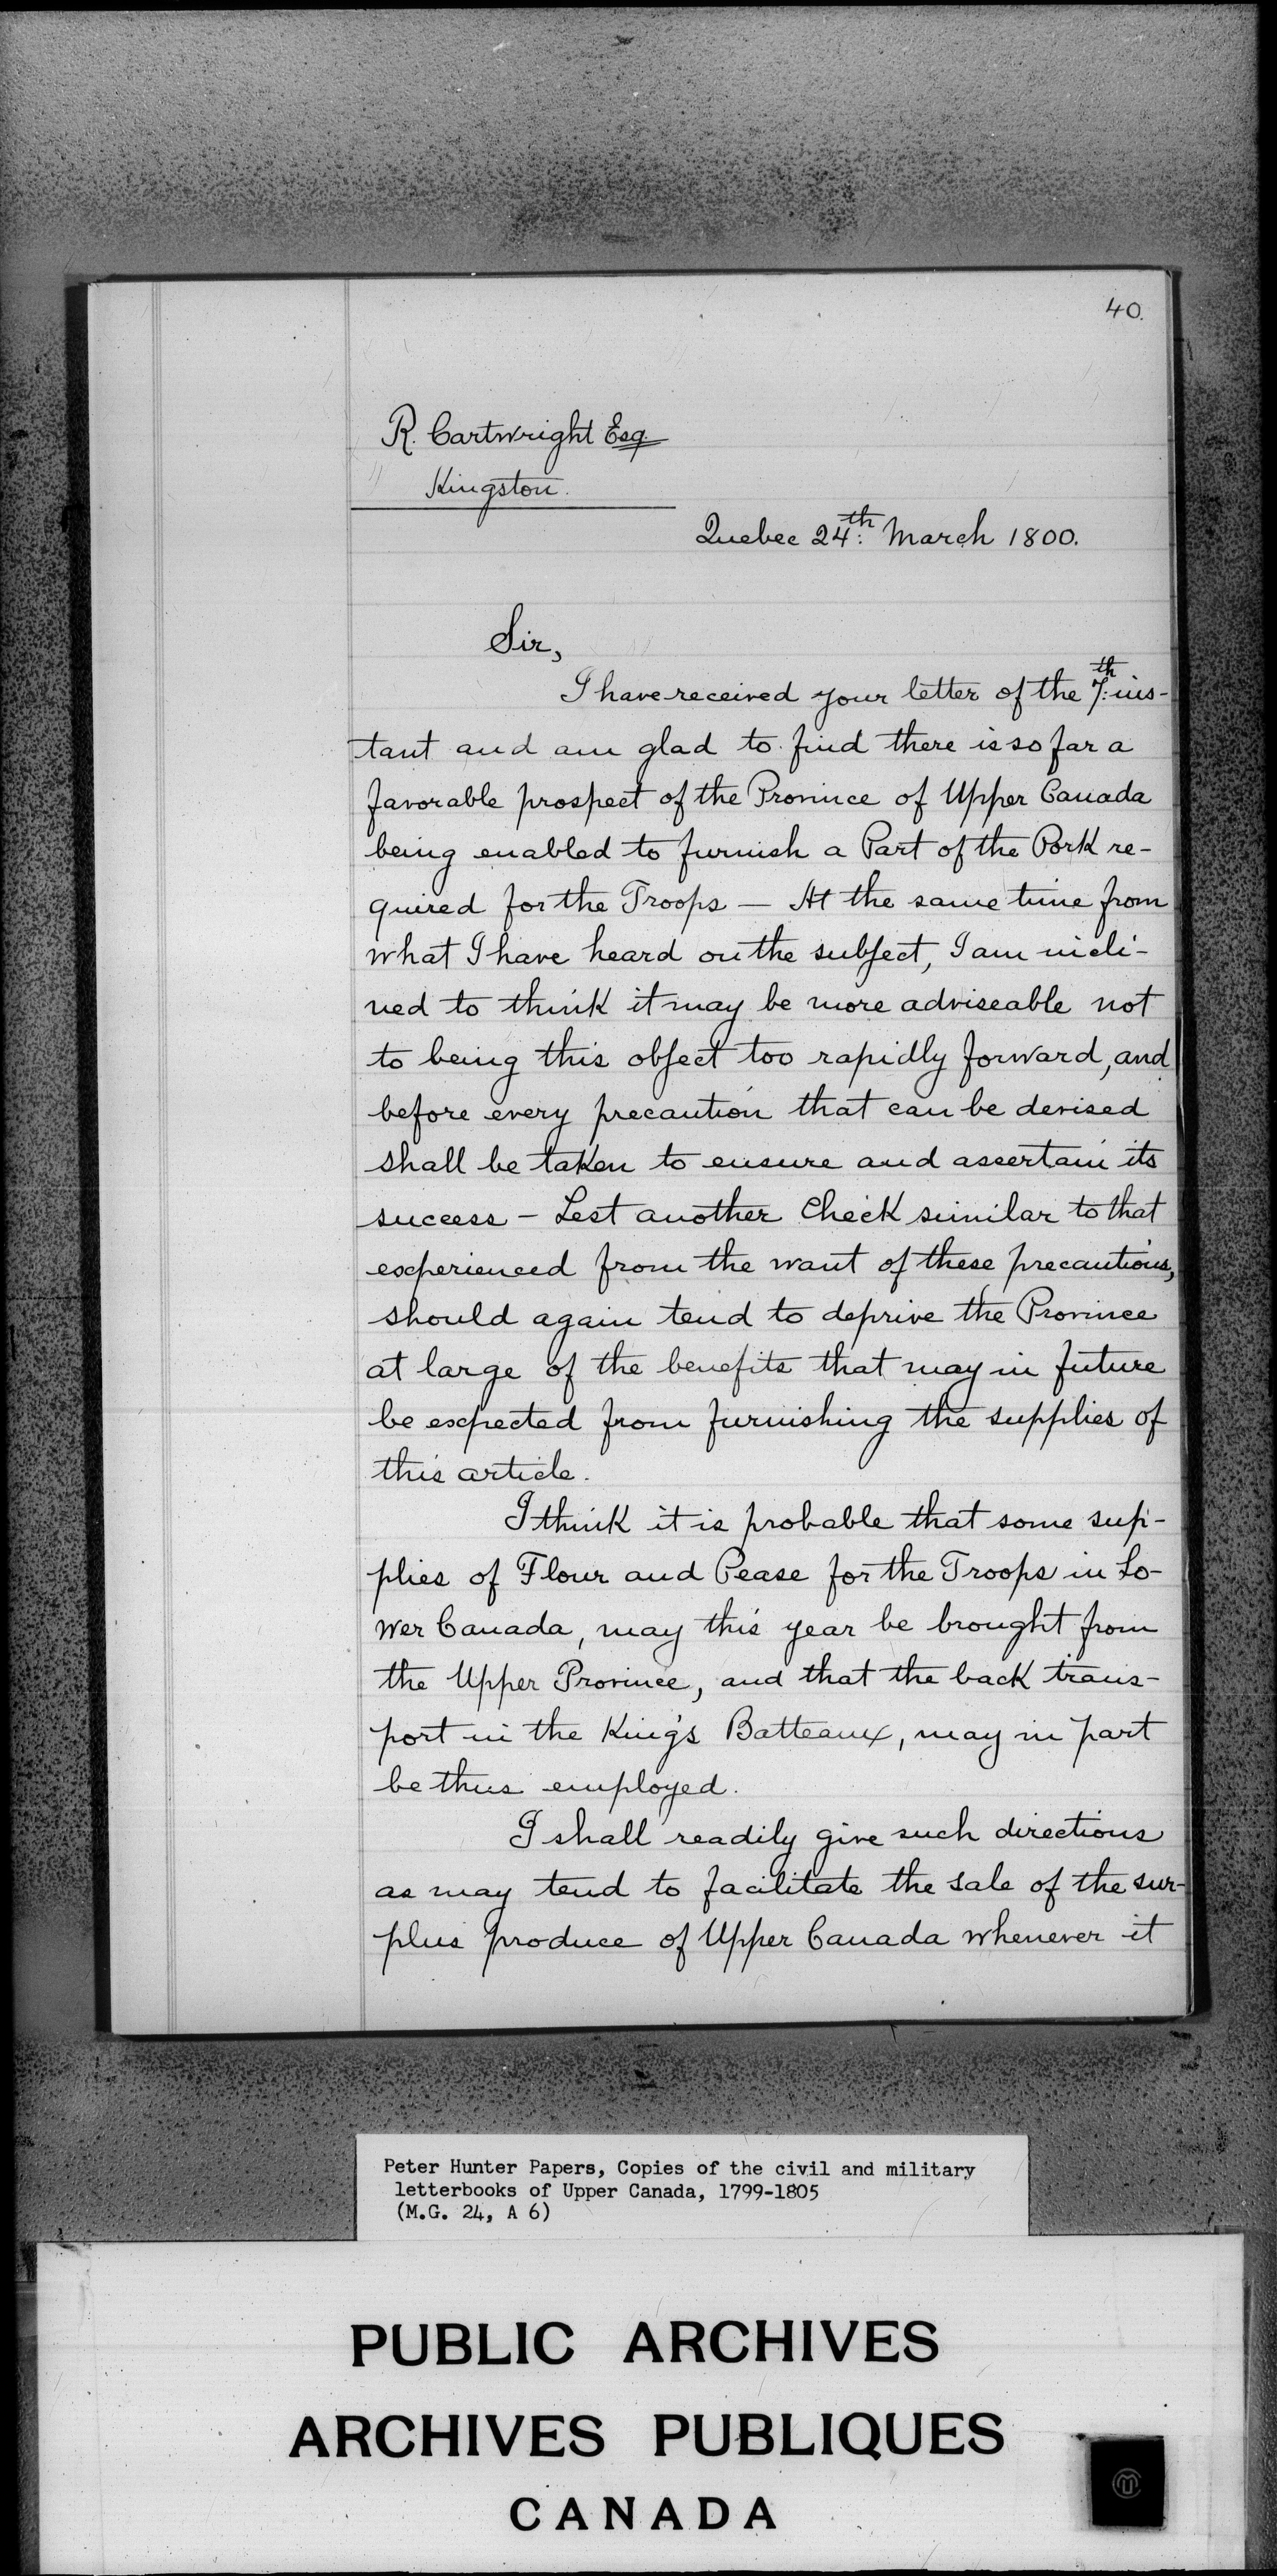 40.
R. Cartwright Esq.
Kingston.
Quebec 24th: March 1800.
Sir,
I have received your letter of the 7th: ins-
tant and am glad to find there is so far a
favorable prospect of the Province of Upper Canada
being enabled to furnish a Part of the Pork re-
quired for the Troops — At the same time from
what I have heard on the subject, I am incli-
ned to think it may be more adviseable not
to being this object too rapidly forward, and
before every precaution that can be devised
shall be taken to ensure and ascertain its
success – Lest another Check similar to that
experienced from the want of these precautions,
should again tend to deprive the Province
at large of the benefits that may in future
be expected from furnishing the supplies of
this article.
I think it is probable that some sup-
plies of Flour and Pease for the Troops in Lo-
wer Canada, may this year be brought from
the Upper Province, and that the back trans-
port in the King's Batteaux, may in part
be thus employed.
I shall readily give such directions
as may tend to facilitate the sale of the sur-
plus produce of Upper Canada whenever it
Peter Hunter Papers, Copies of the civil and military
letterbooks of Upper Canada, 1799-1805
(M.G. 24, A 6)
PUBLIC ARCHIVES
ARCHIVES PUBLIQUES
CANADA